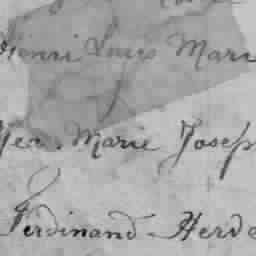 Henri Louis Mari
Marie Josep
Ferdinand Herde